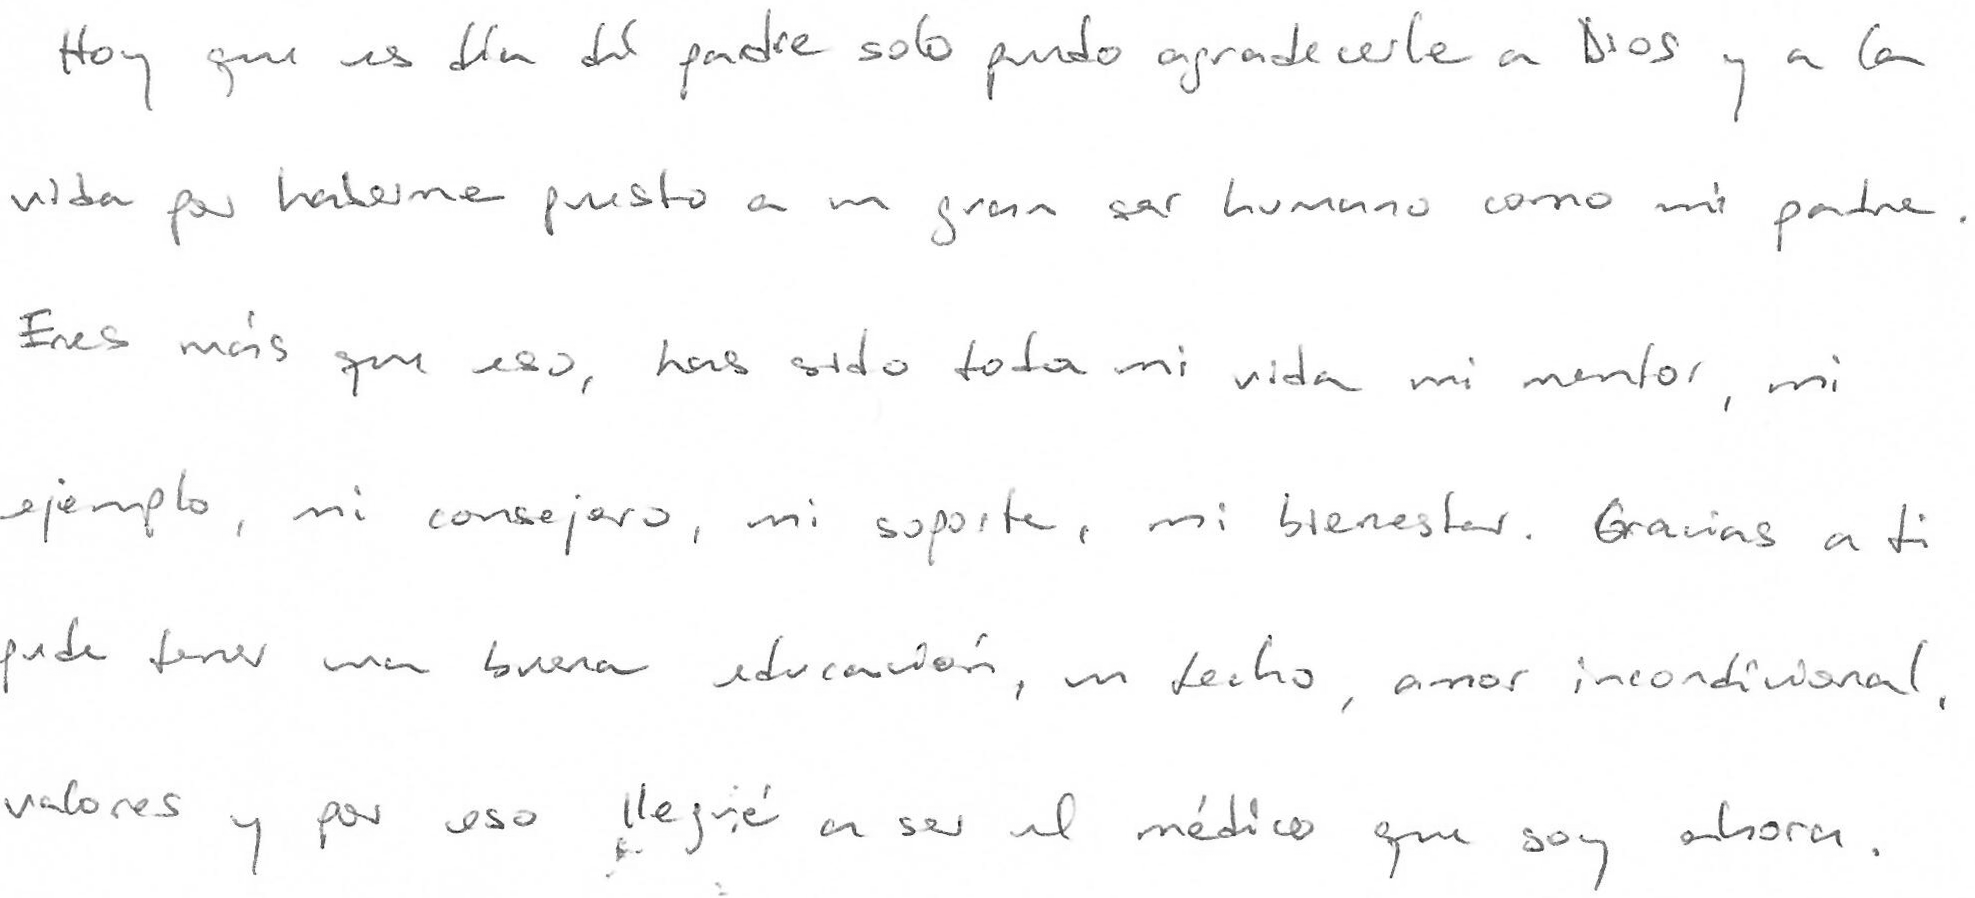 Hoy que es día del padre solo puedo agradecerle a Dios y a la
vida por haberme puesto a un gran ser humano como mi padre.
Eres más que eso, has sido toda mi vida mi mentor, mi
ejemplo, mi consejero, mi soporte, mi bienestar. Gracias a ti
pude tener una buena educación, un techo, amor incondicional,
valores y por eso llegué a ser el médico que soy ahora.